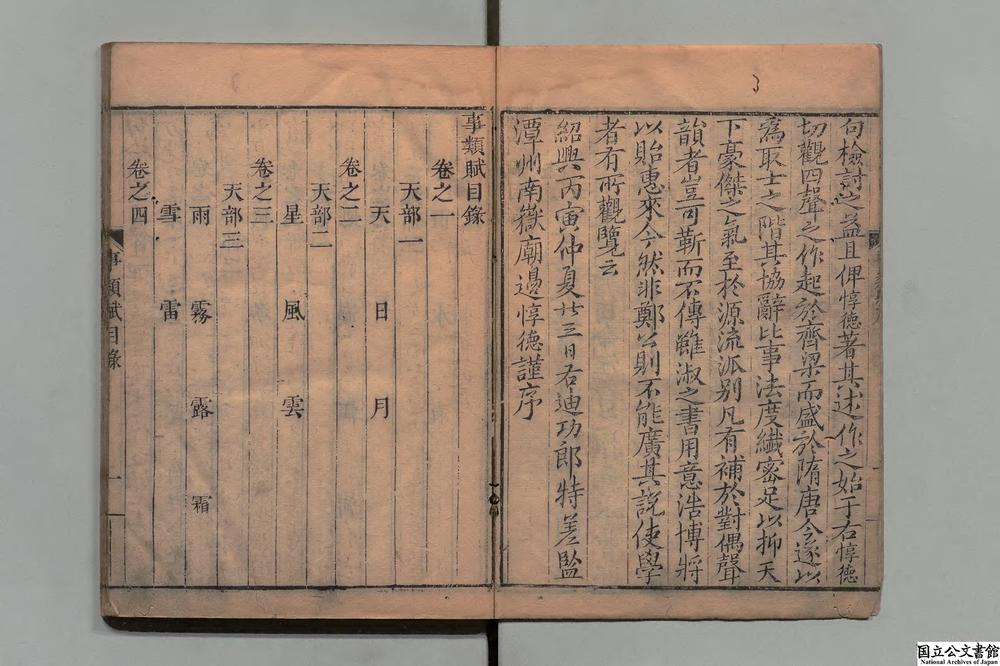 句檢討之益且俾惇德著其述作之始于右惇德
切觀四聲之作起於齊梁而盛於隋唐今遂以
為取士之階其協辭比事法度纖密足以抑天
下豪傑之氣至於源流派别凡有補於對偶聲
韻者豈可靳而不傳雖淑之書用意浩博將
以貽惠來今然非鄭公則不能廣其說使學
者有所觀覽云
紹興丙寅仲夏廿三日右迪功郎特差監
潭州南嶽廟邊惇德謹序
事類賦目錄
卷之一
天部一
天 日 月
卷之二
天部二
星 風 雲
卷之三
天部三
雨 霧 露 霜
雪 雷
卷之四
事類賦目錄
一
国立公文書館
National Archives of Japan